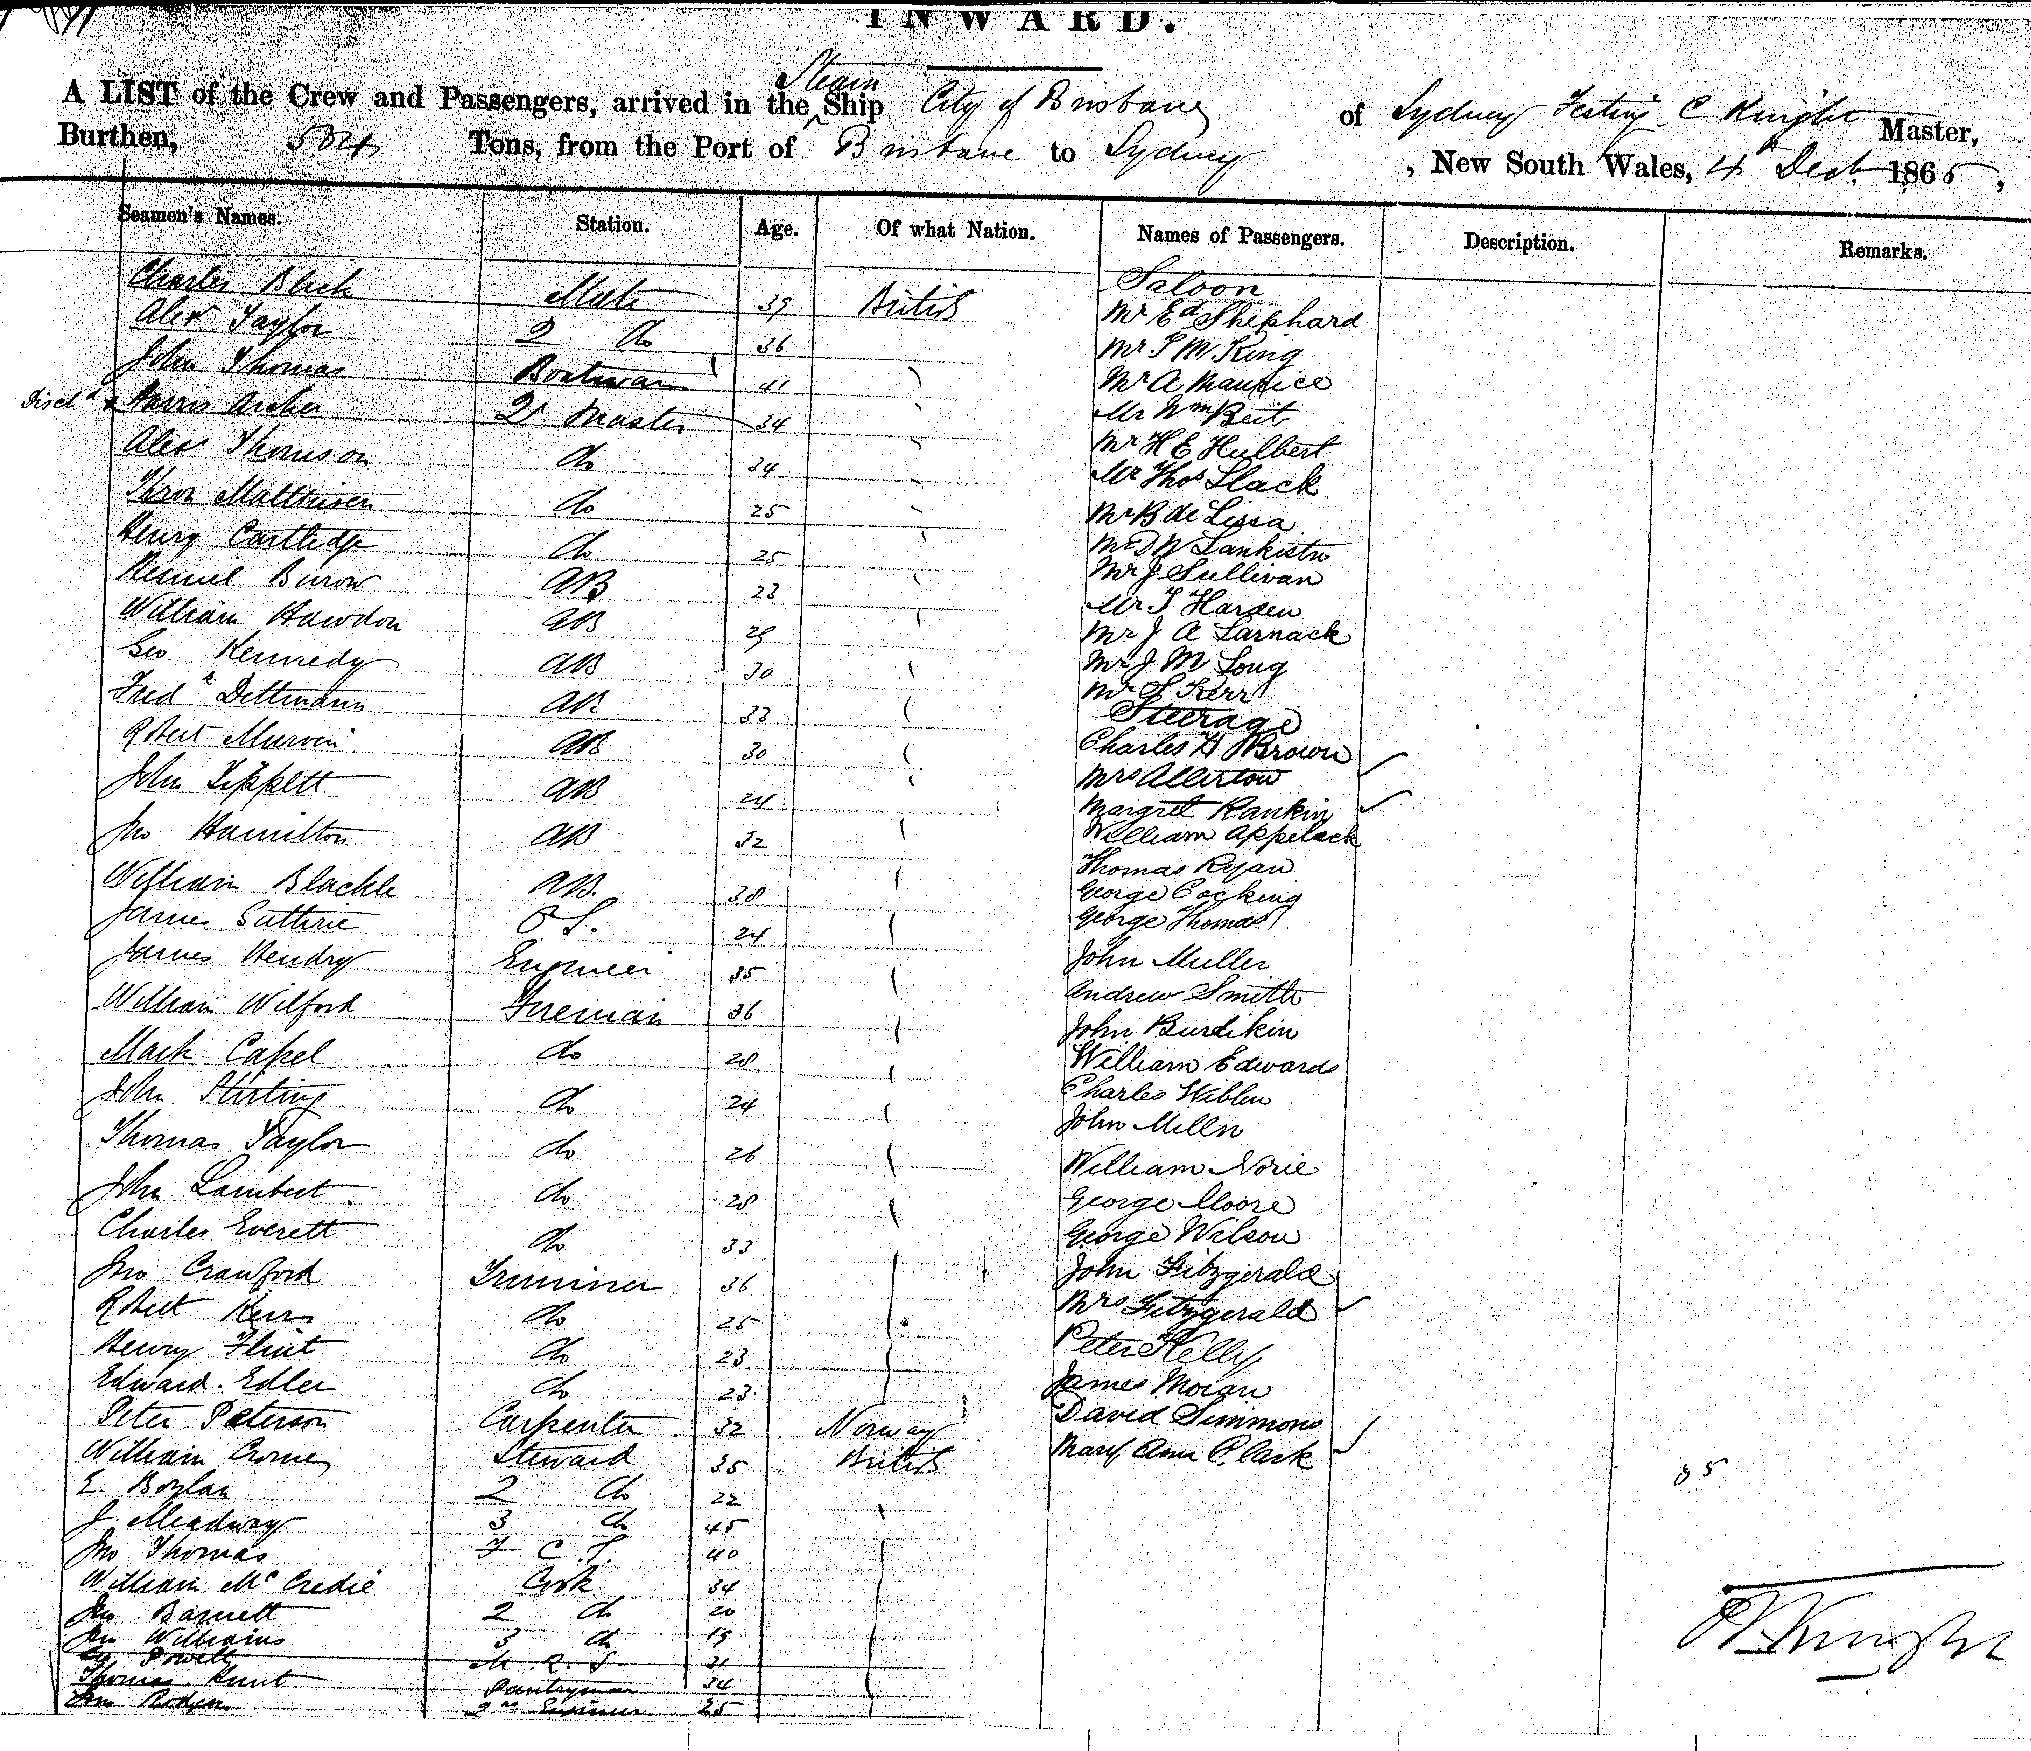 INWARD.
A LIST of the Crew and Passengers, arrived in the Steam Ship City of Brisbane of Sydney C Knight Master,
Burthen, 504 Tons, from the Port of Brisbane to Sydney, New South Wales, 4 Dect. 1865,
Seamen's Names. Station. Age. Of what Nation. Names of Passengers. Description. Remarks.
Charles Black Mate 39 British
Alexr Taylor 2 do 36
John Thomas Boatswain 41
Disch Archer Qr Master 34
Alexr Thomson do 34
Matthisen do 25
Henry Cartledge do 25
Burow AB 23
William Hawdon AB 29
Geo Kennedy AB 30
Fredk Dettmann AB 33
Robert AB 30
John Tippett AB 24
Jno Hamilton AB 32
William Blackle AB. 38
James Guthrie O S. 24
James Hendry Engineer 35
William Wilford Fireman 36
Mark Capel do 28
John Stirling do 24
Thomas Taylor do 26
John Lambert do 28
Charles Everett do 33
Jno Crawford Trimmer 36
Robert Kerr do 25
Henry Flint do 23
Edward Edler do 23
Peter Paterson Carpenter 32 Norway
William Crome Steward 35 British
E. Boylan 2 do 22
J Meadway 3 do 45
Jno Thomas F C S 40
William Mc Credie Cook 34
Jno Barnett 2 do 20
Jno Williams 3 do 19
Powell 21
Thomas Hunt Pantryman 34
Jno Rodger 2nd Engineer 25
Saloon
Mr Ed Shephard
Mr T M King
Mr A Maurice
Mr Wm Beit
Mr H E Hulbert
Mr Thos Slack
Mr B de Lissa
Mr D W
Mr J Sullivan
Mr T Harden
Mr J A Larnack
Mr J M Long
Mr S Kerr
Steerage
Charles H Brown
Mrs Allerton
Margret Rankin
William Appelack
Thomas Ryan
George Cocking
George Thomas
John Muller
Andrew Smith
John Burdikin
William Edwards
Charles Wiblen
John Miller
William Norie
George Moore
George Wilson
John Fitzgerald
Mrs Fitzgerald
Peter Kelly
James Moran
David Simmons
Mary Ann Clark
85
Knight